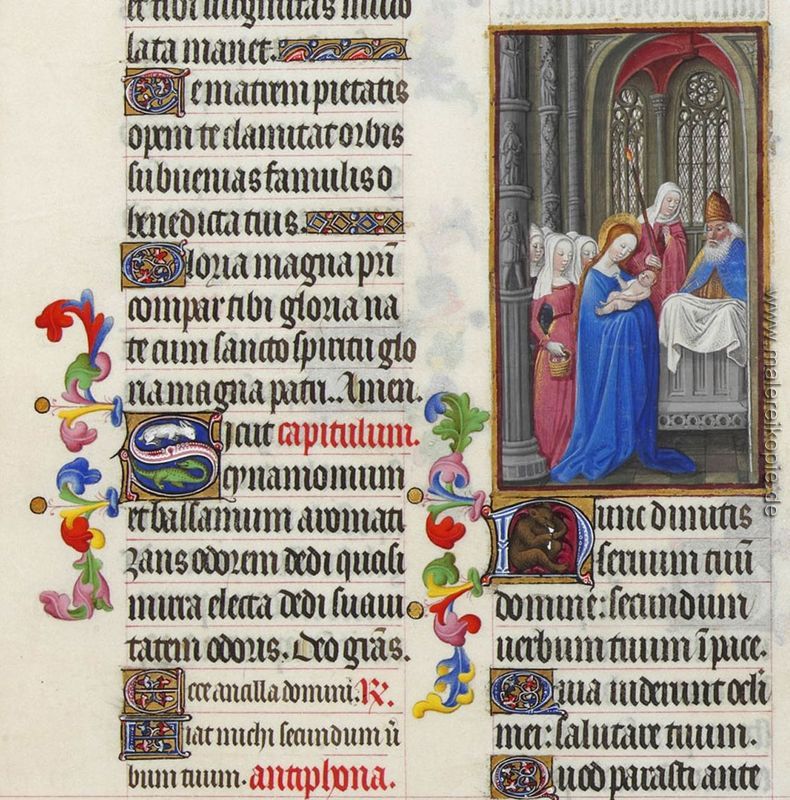 et tibi magnitas multo
lata manet.
Te matrem pietatis
opem te clamitat orbis
subuenias famulis o
benedicta tuis.
Gloria magna pr̄i
compar tibi gloria na
te cum sancto spiritu glo
ria magna patri. Amen.
Sicut capitulum.
cynamomum
et balsamum aromati
zans odorem dedi quasi
mirra electa dedi suaui
tatem odoris. Deo grās.
Ecce ancilla domini. Rx.
Fiat michi secundum ū
bum tuum. antiphona.
Nunc dimitis
seruum tuū
domine: secundum
uerbum tuum ī pace.
Quia uiderunt ocłi
mei: salutare tuum.
Quod parasti ante
www.malereikopie.de